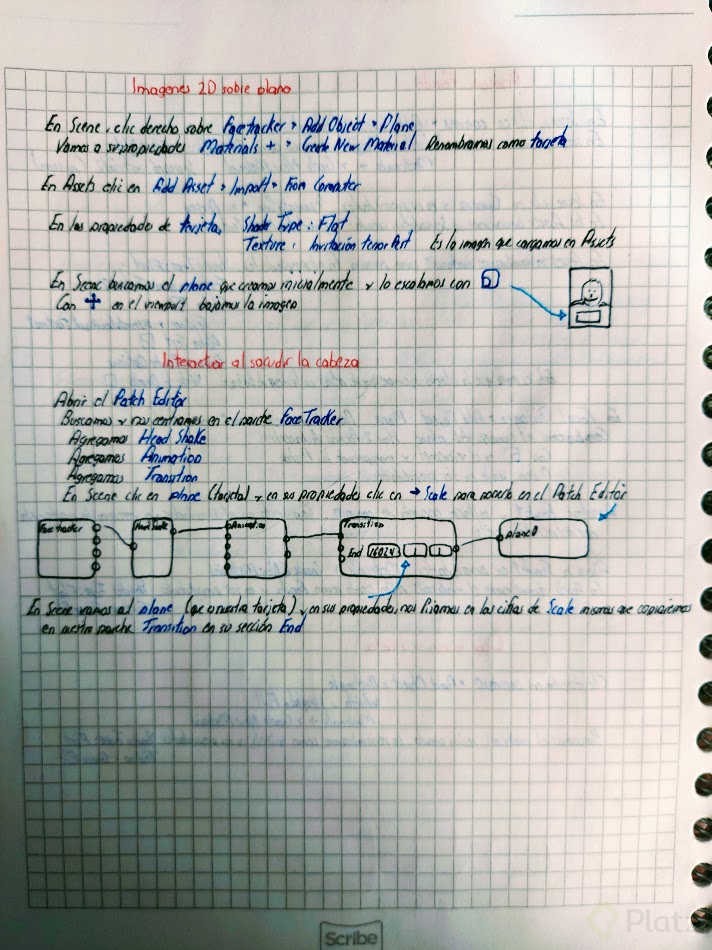 Imagenes 2D sobre plano
En Scene, clic derecho sobre Facetracker > Add Object > Plane
Vamos a su propiedades Materials + > Create New Material Renombramos como tarjeta
En Assets clic en Add Asset > Import > From Computer
En las propiedades de tarjeta, Shader Type: Flat
Texture: Invitación Es la imagen que cargamos en Assets
En Scene buscamos el plane que creamos inicialmente y lo escalamos con
Con en el viewport bajamos la imagen
Interactuar al sacudir la cabeza
Abrir el Patch Editor
Buscamos y nos centramos en el parche FaceTracker
Agregamos Head Shake
Agregamos Animation
Agregamos Transition
En Scene clic en plane (tarjeta) y en sus propiedades clic en → Scale para ponerlo en el Patch Editor
Facetracker
Head Shake
Animation
Transition
End 1 1
plane0
En Scene vamos al plane (que es nuestra tarjeta) y en sus propiedades, nos fijamos en las cifras de Scale mismas que copiaremos
en nuestro parche Transition en su sección End
Scribe
Platzi